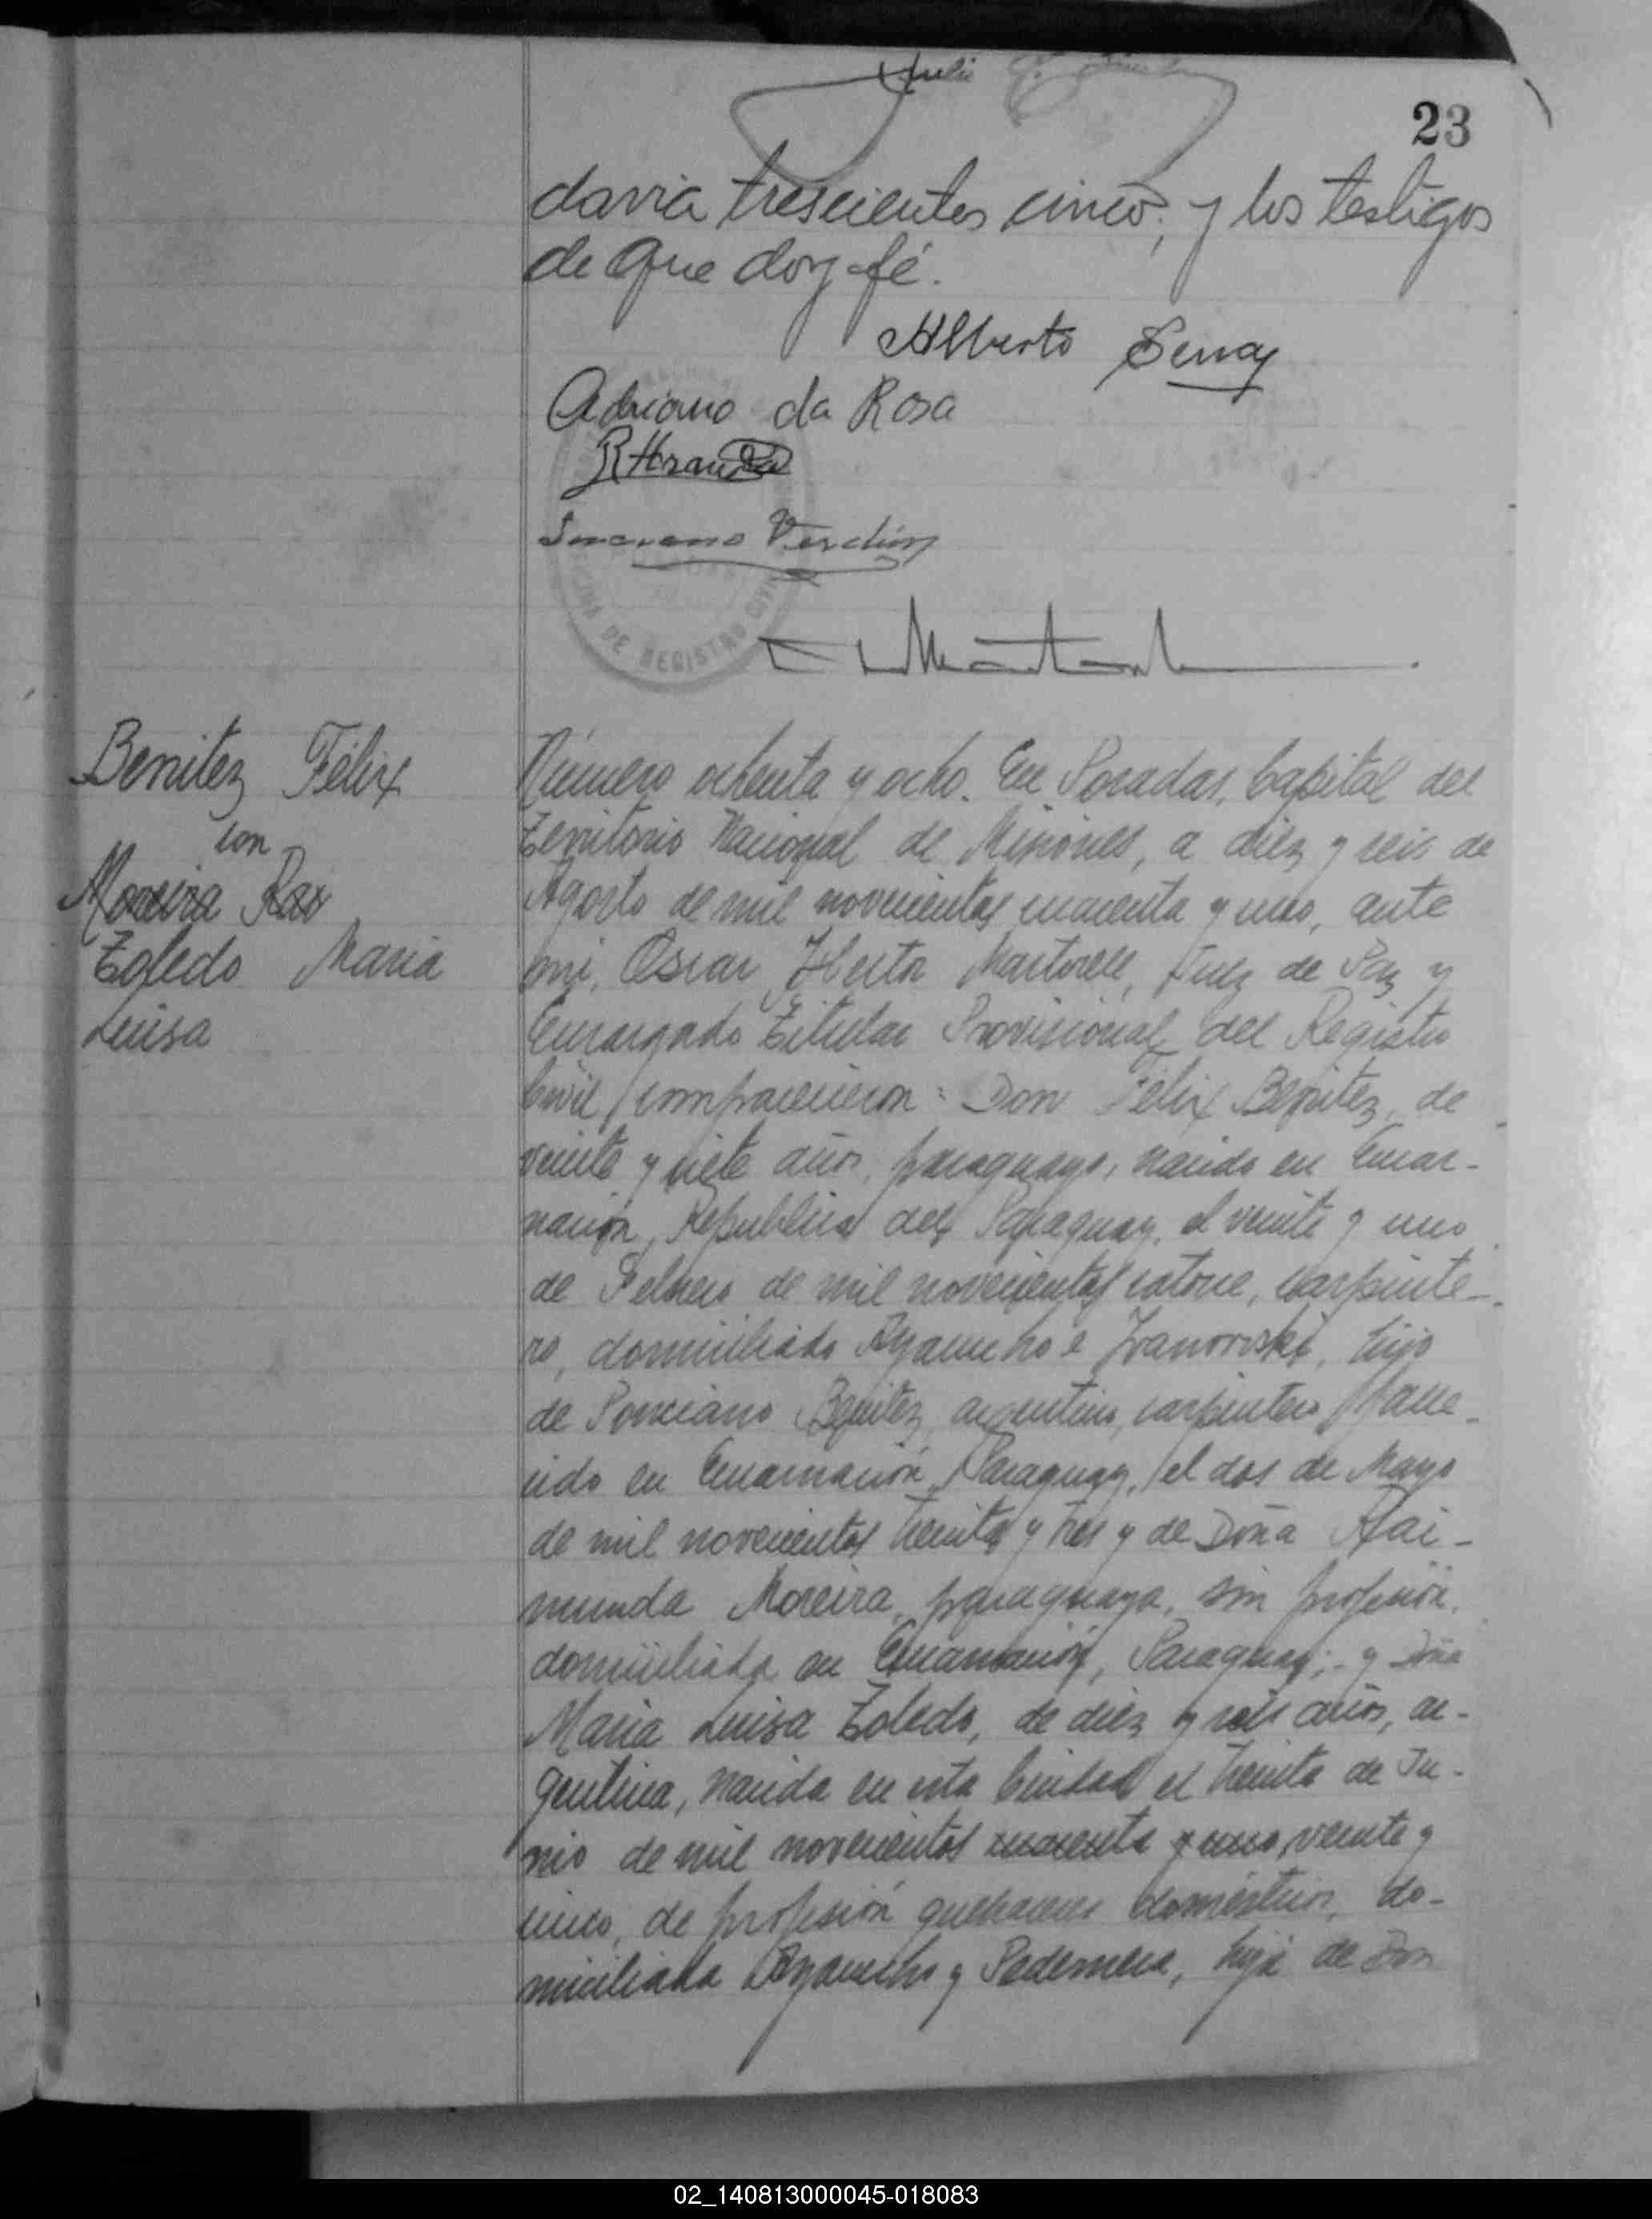 23
davia trescientos cinco; y los testigos
de que doy fé.
Alberto
Adriano da Rosa
Verdún
OFICINA DE REGISTRO CIVIL
Benitez Félix
con
Moreira Rai
Toledo Maria
Luisa
Número ochenta y ocho. En Posadas, Capital del
Territorio Nacional de Misiones, a diez y seis de
Agosto de mil novecientos cuarenta y uno, ante
mi, Oscar Hector Martorell, Juez de Paz y
Encargado Titular Provisional del Registro
Civil, comparecieron: Don Félix Benitez, de
veinte y siete años, paraguayo, nacido en Encar-
nación, Republica del Paraguay, el veinte y uno
de Febrero de mil novecientos catorce, carpinte-
ro, domiciliado Ayacucho e Ivanowski, hijo
de Ponciano Benitez, argentino, carpintero, falle-
cido en Encarnación, Paraguay, el dos de Mayo
de mil novecientos treinta y tres y de Doña Rai-
munda Moreira, paraguaya, sin profesión,
domiciliada en Encarnación, Paraguay; y Doña
Maria Luisa Toledo, de diez y seis años, ar-
gentina, nacida en esta Ciudad el treinta de Ju-
nio de mil novecientos cuarenta y uno, veinte y
cinco, de profesión quehaceres domésticos, do-
miciliada Ayacucho y Pedernera, hija de Don
02_140813000045-018083